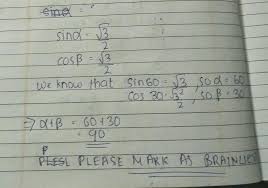 sinα = √3/2
cosβ = √3/2
we know that sin60 = √3/2, so α = 60
cos 30 = √3/2, so β = 30
⇒ α+β = 60+30
= 90
PLEASE MARK AS BRAINLIE